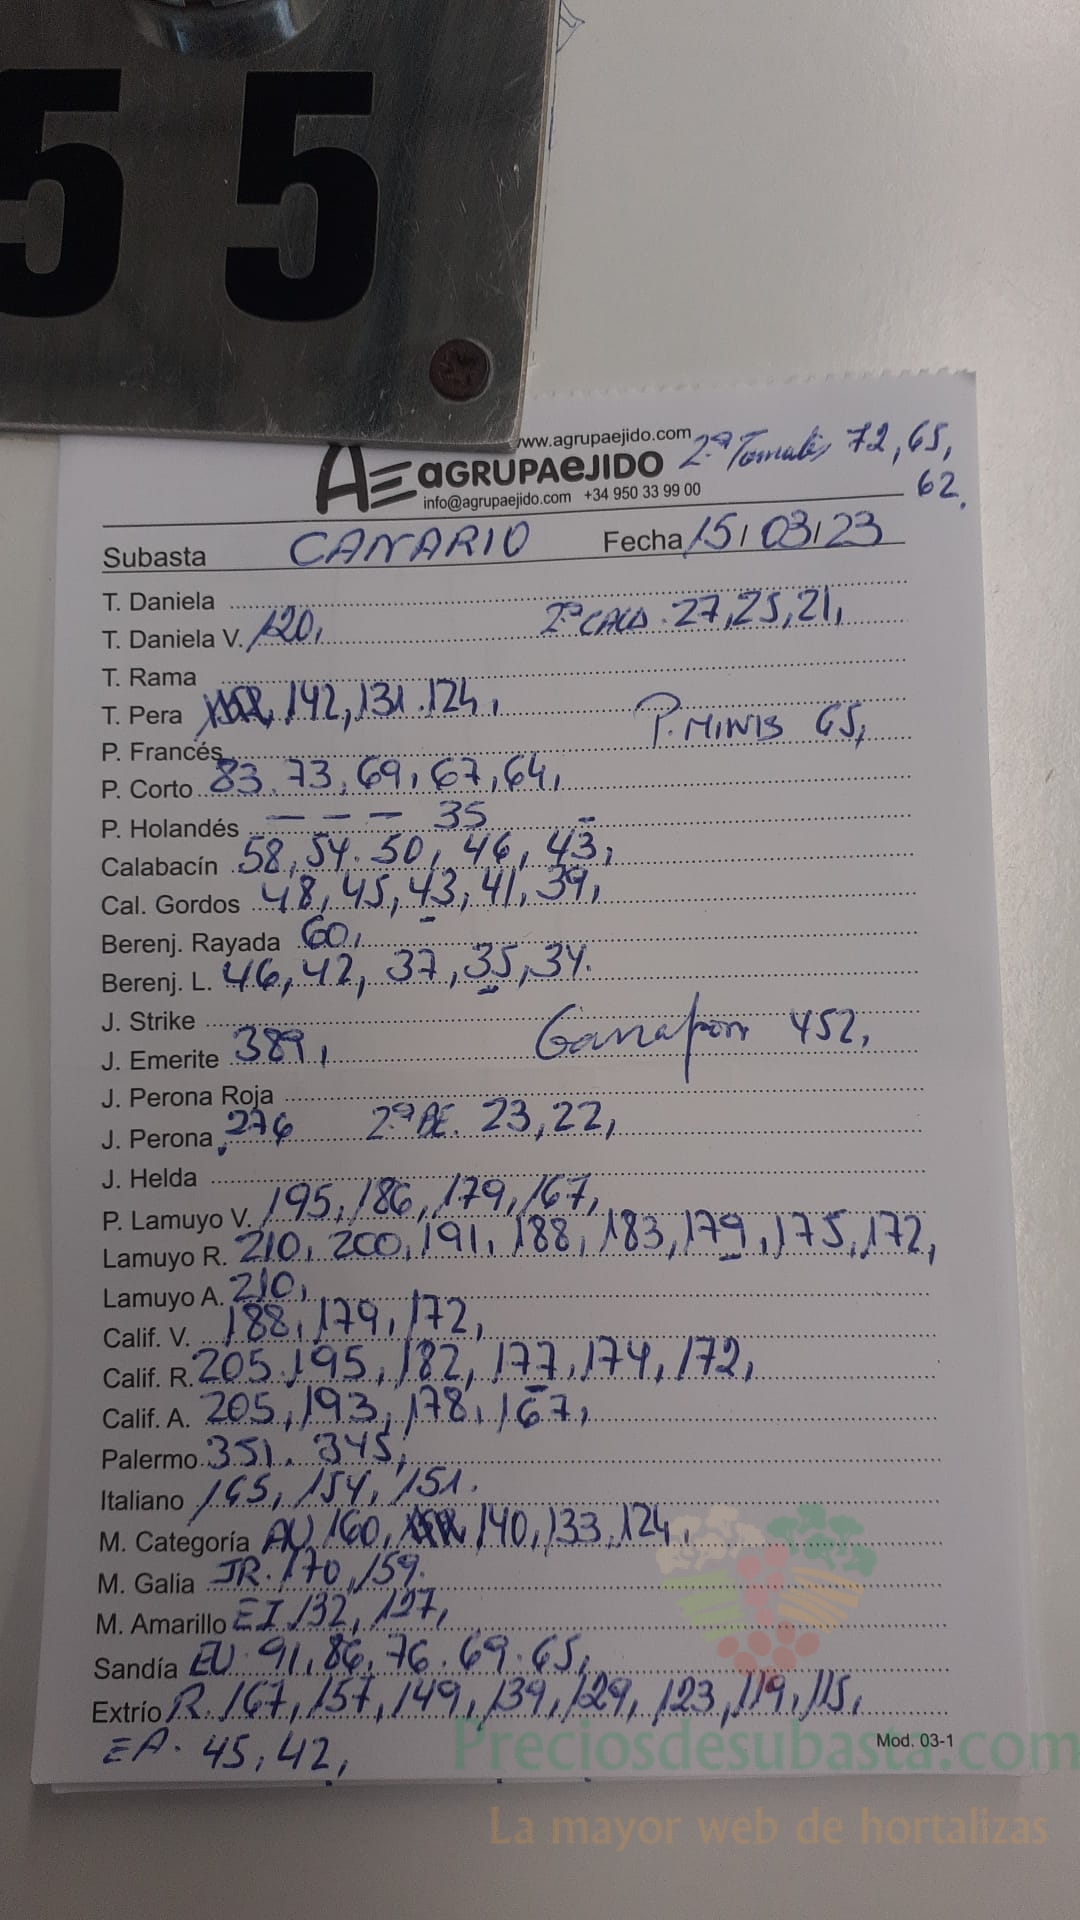 55
www.agrupaejido.com 2ª Tomates 72, 65,
AE aGRUPAeJIDO
info@agrupaejido.com +34 950 33 99 00 62.
Subasta CANARIO Fecha 15/03/23
T. Daniela
T. Daniela V. 120, 2ª CALA. 27, 25, 21,
T. Rama
T. Pera 142, 131. 124,
P. Francés P. MINIS 65,
P. Corto 83. 73, 69, 67, 64,
P. Holandés — — — 35
Calabacín 58, 54. 50, 46, 43,
Cal. Gordos 48, 45, 43, 41, 39,
Berenj. Rayada 60,
Berenj. L. 46, 42, 37, 35, 34.
J. Strike
J. Emerite 389, Garrafon 452,
J. Perona Roja
J. Perona 276 2ª BE. 23, 22,
J. Helda
P. Lamuyo V. 195, 186, 179, 167,
Lamuyo R. 210, 200, 191, 188, 183, 179, 175, 172,
Lamuyo A. 210,
Calif. V. 188, 179, 172,
Calif. R. 205. 195, 182, 177, 174, 172,
Calif. A. 205, 193, 178, 167,
Palermo 351. 345,
Italiano 165, 154, 151.
M. Categoría AU 160, 140, 133, 124,
M. Galia JR. 170, 159.
M. Amarillo EI 132, 127,
Sandía EU. 91, 86, 76. 69. 65,
Extrío R. 167, 157, 149, 139, 129, 123, 119, 115,
EA. 45, 42,
Mod. 03-1
Preciosdesubasta.com
La mayor web de hortalizas